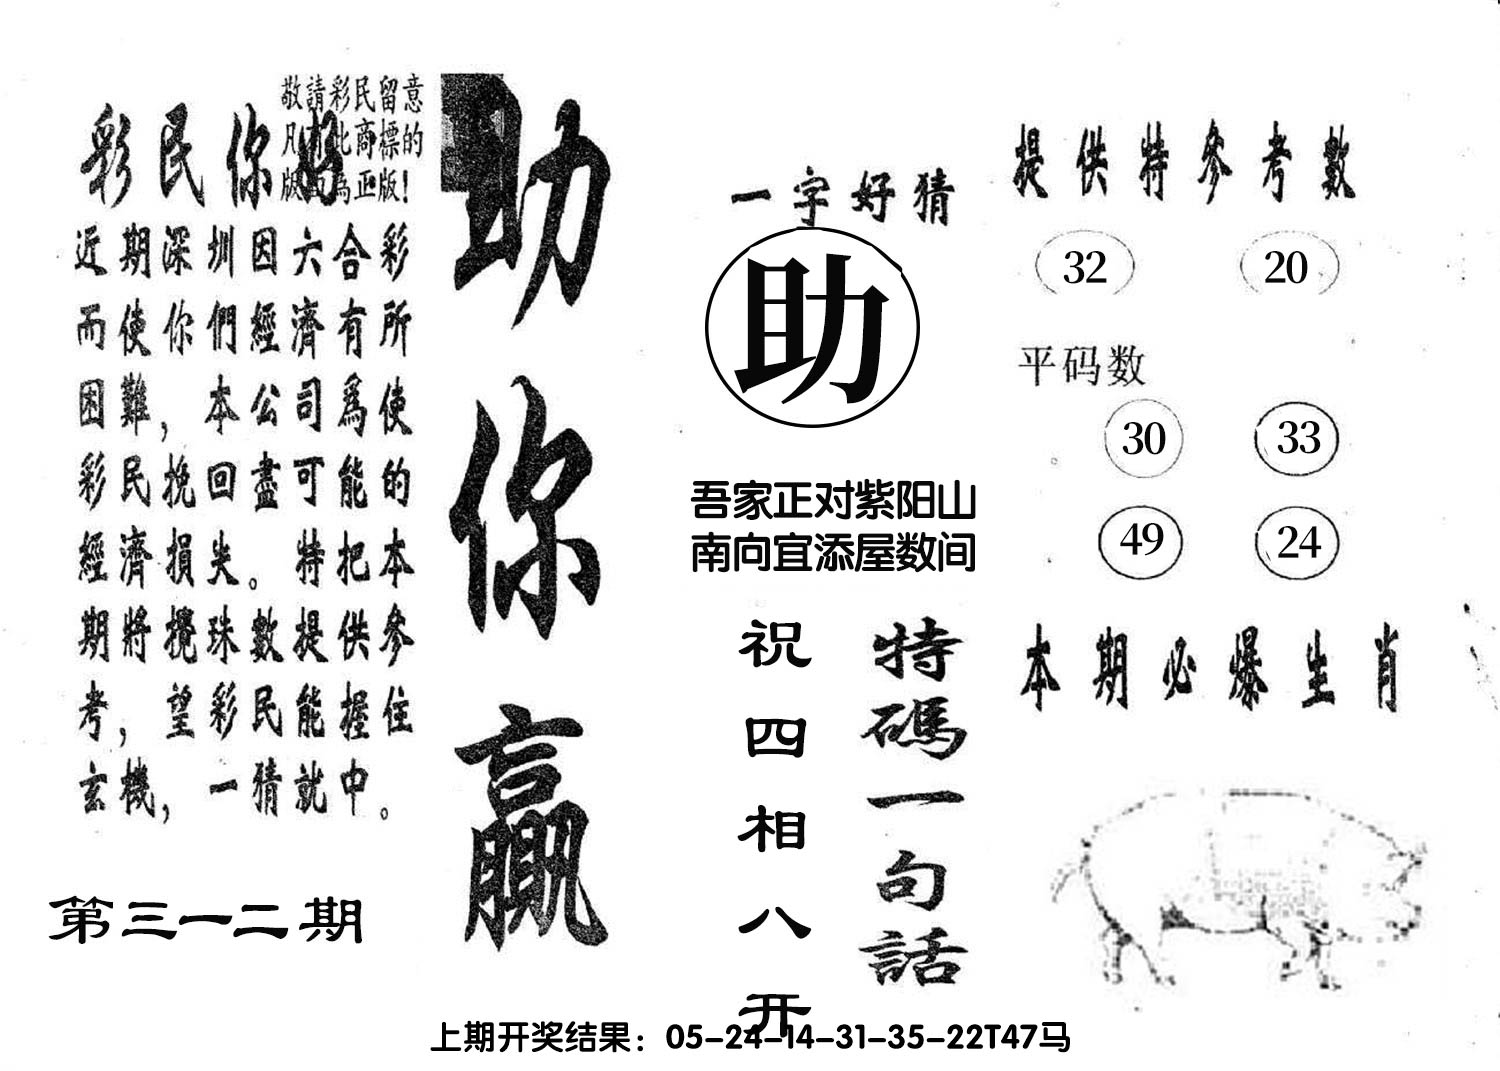 敬請彩民留意
凡有此商標的
版面為正版!
彩民你好
近期深圳因六合彩
而使你們經濟有所
困難，本公司爲使
彩民挽回盡可能的
經濟損失。特把本
期將攪珠數提供參
考，望彩民能握住
玄機，一猜就中。
第三一二期
助你贏
一字好猜
助
吾家正对紫阳山
南向宜添屋数间
特碼一句話
祝四相八开
提供特參考數
32 20
平码数
30 33
49 24
本期必爆生肖
上期开奖结果：05-24-14-31-35-22T47马